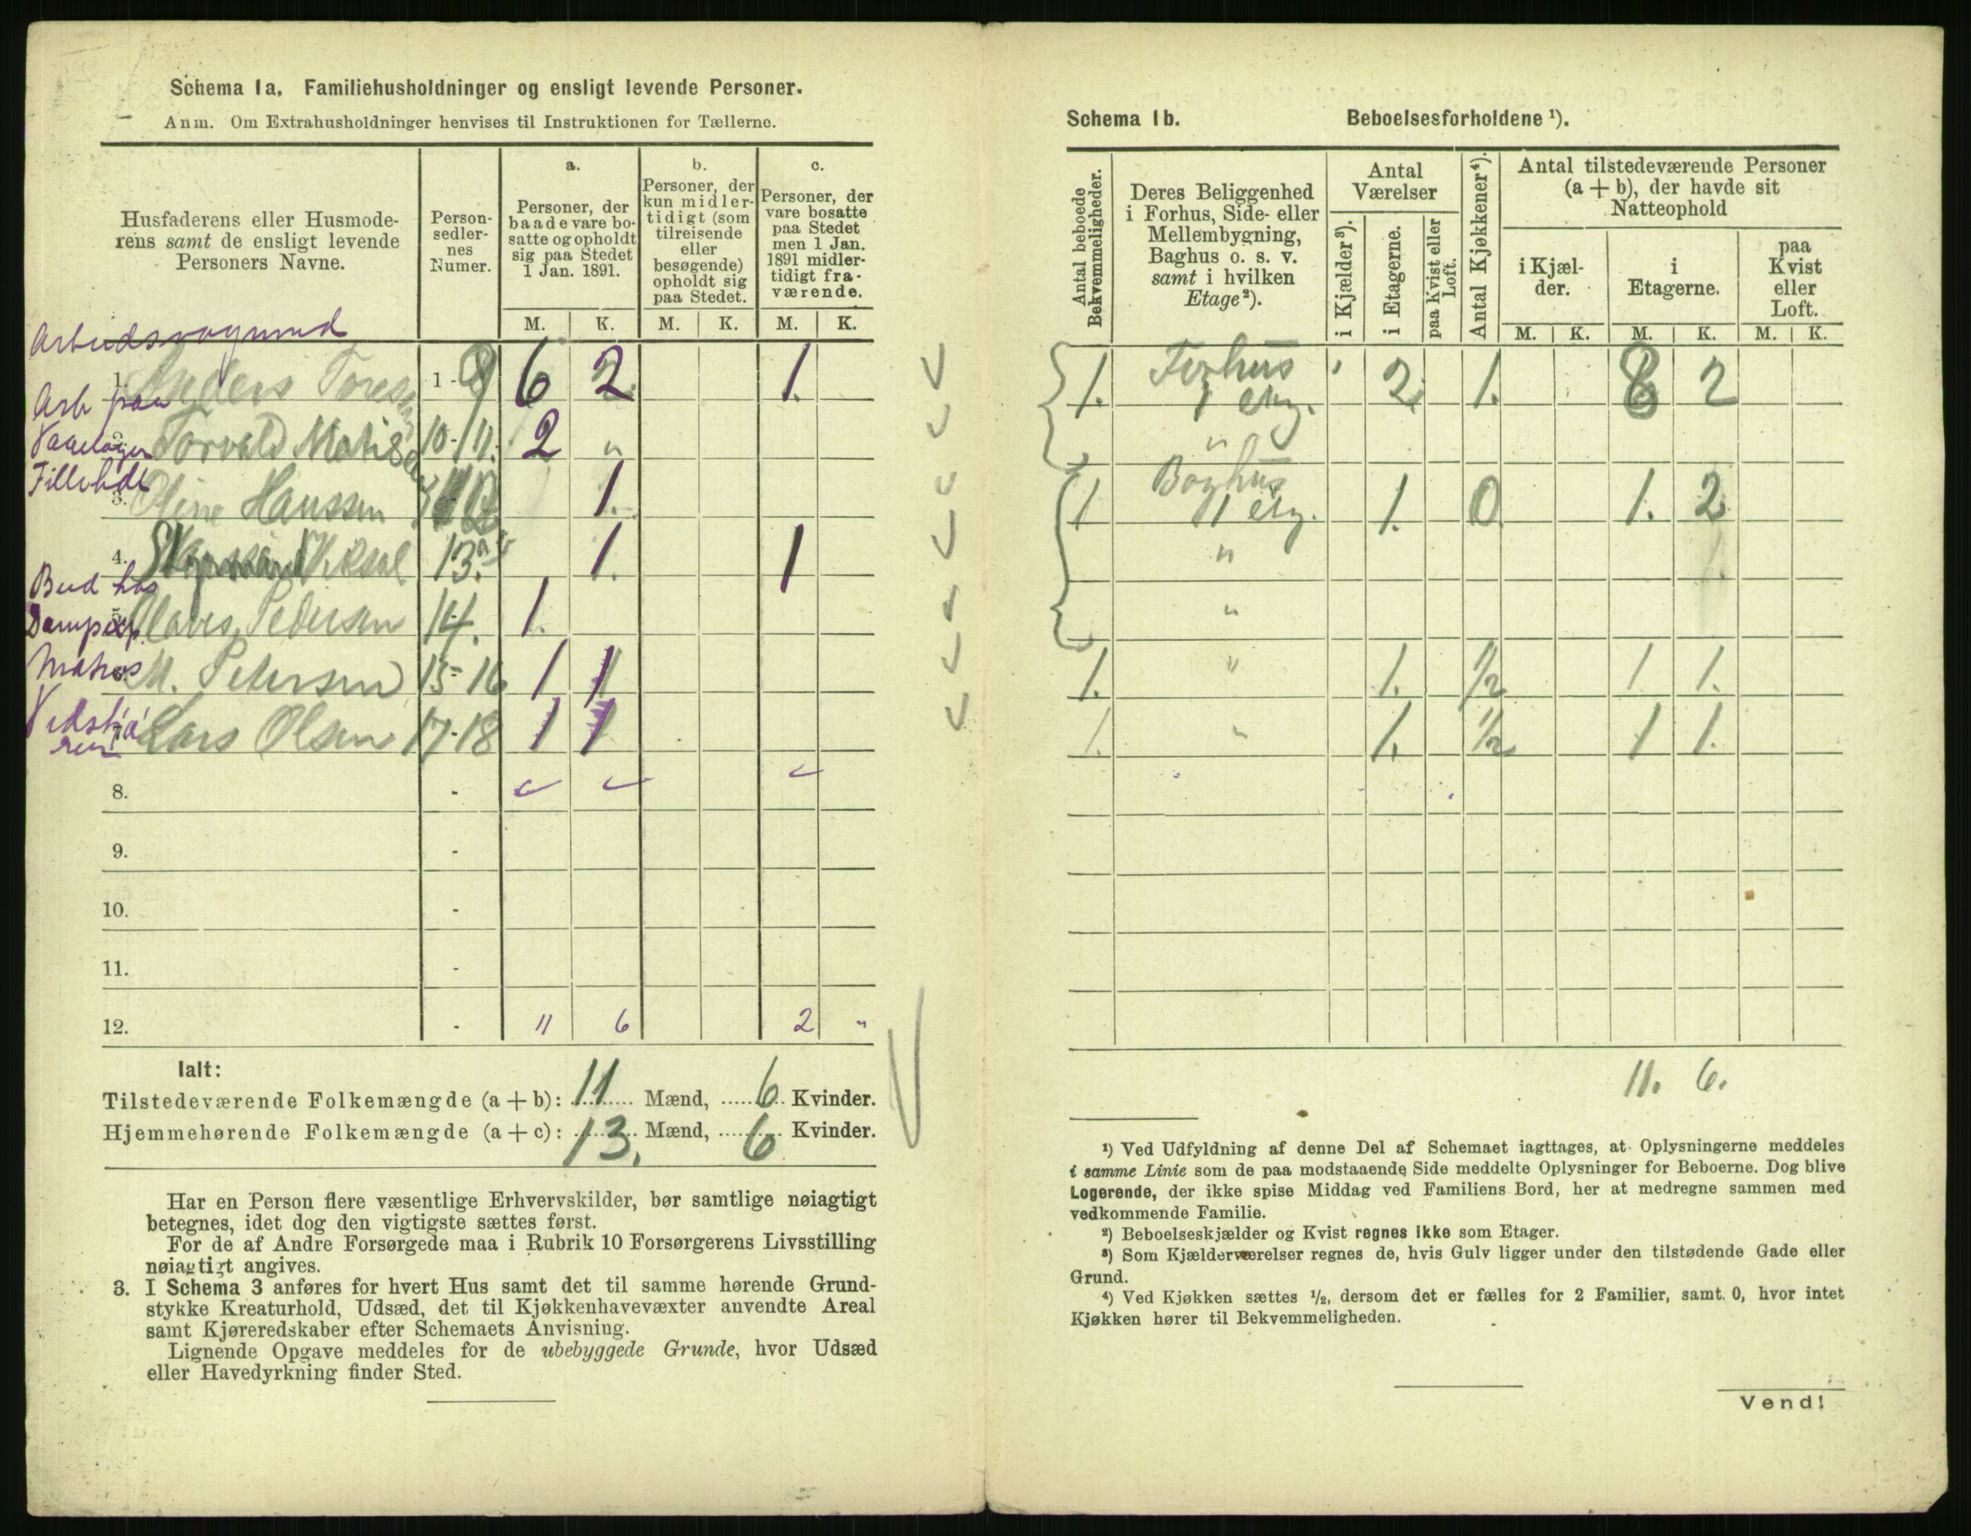 Schema 1a. Familiehusholdninger og ensligt levende Personer.
Anm. Om Extrahusholdninger henvises til Instruktionen for Tællerne.
Husfaderens eller Husmode-
rens samt de ensligt levende
Personers Navne.
Person-
sedler-
nes
Numer.
a.
Personer, der
baade vare bo-
satte og opholdt
sig paa Stedet
1 Jan. 1891.
b.
Personer, der
kun midler-
tidigt (som
tilreisende
eller
besøgende)
opholdt sig
paa Stedet.
c.
Personer, der
vare bosatte
paa Stedet
men 1 Jan.
1891 midler-
tidigt fra-
værende.
M. K. M. K. M. K.
1. Anders 1 - 9 6 2. 1.
Arb paa
2. Torvald 10-11. 2 "
3. Oline Hanssen 12 1.
4. 13. 1. 1
Bud hos
5. Olaves Pedersen 14. 1.
Matros
6. M. Petersen 15-16 1 1
7. Lars Olsen 17-18 1 1
8. -
9. -
10. -
11. -
12. - 11 6 2 "
Ialt:
Tilstedeværende Folkemængde (a + b): 11 Mænd, 6 Kvinder.
Hjemmehørende Folkemængde (a + c): 13. Mænd, 6 Kvinder.
Har en Person flere væsentlige Erhvervskilder, bør samtlige nøiagtigt
betegnes, idet dog den vigtigste sættes først.
For de af Andre Forsørgede maa i Rubrik 10 Forsørgerens Livsstilling
nøiagtigt angives.
3. I Schema 3 anføres for hvert Hus samt det til samme hørende Grund-
stykke Kreaturhold, Udsæd, det til Kjøkkenhavevæxter anvendte Areal
samt Kjøreredskaber efter Schemaets Anvisning.
Lignende Opgave meddeles for de ubebyggede Grunde, hvor Udsæd
eller Havedyrkning finder Sted.
Schema 1b. Beboelsesforholdene ¹).
Antal beboede
Bekvemmeligheder.
Deres Beliggenhed
i Forhus, Side- eller
Mellembygning,
Baghus o. s. v.
samt i hvilken
Etage²).
Antal
Værelser
i Kjælder³).
i Etagerne.
paa Kvist eller
Loft.
Antal Kjøkkener⁴).
Antal tilstedeværende Personer
(a + b), der havde sit
Natteophold
i Kjæl-
der.
i
Etagerne.
paa
Kvist
eller
Loft.
M. K. M. K. M. K.
1. Forhus 1 etg. 2 1. 8 2
"
1 Baghus 1 etg. 1. 0 1. 2
"
"
1. " 1. 1/2 1 1.
1. " 1. 1/2 1 1.
11. 6.
¹) Ved Udfyldning af denne Del af Schemaet iagttages, at Oplysningerne meddeles
i samme Linie som de paa modstaaende Side meddelte Oplysninger for Beboerne. Dog blive
Logerende, der ikke spise Middag ved Familiens Bord, her at medregne sammen med
vedkommende Familie.
²) Beboelseskjælder og Kvist regnes ikke som Etager.
³) Som Kjælderværelser regnes de, hvis Gulv ligger under den tilstødende Gade eller
Grund.
⁴) Ved Kjøkken sættes ½, dersom det er fælles for 2 Familier, samt. 0, hvor intet
Kjøkken hører til Bekvemmeligheden.
Vend!